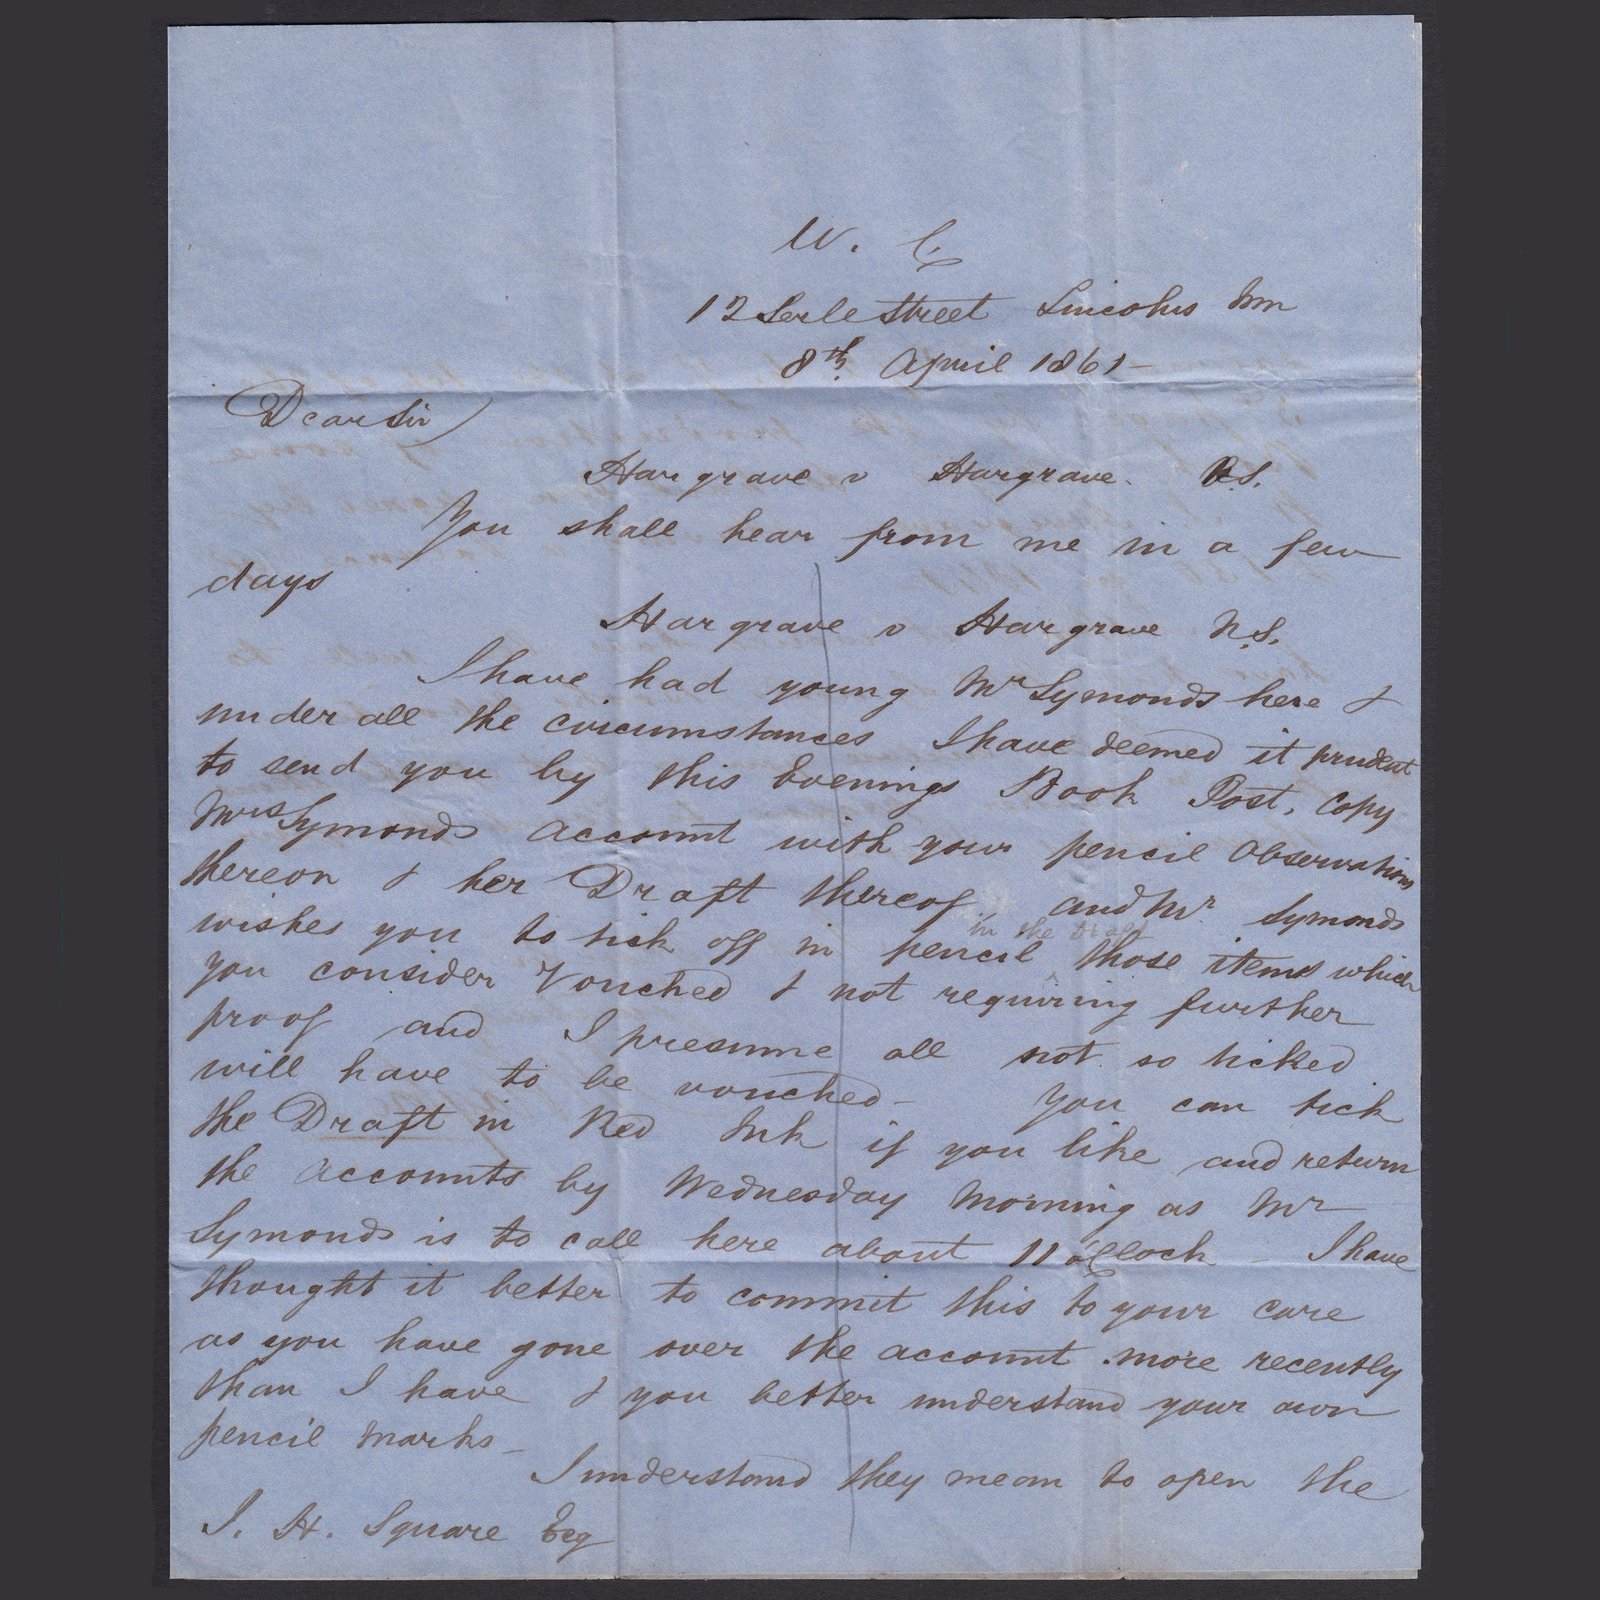 W. C
12 Serle Street Lincolns Inn
8th April 1861 -
Dear Sir
Hargrave v Hargrave. R.S.
You shall hear from me in a few
days
Hargrave v Hargrave N.S.
I have had young Mr Symonds here &
under all the circumstances I have deemed it prudent
to send you by this Evenings Book Post, Copy
Mrs Symonds account with your pencil observations
thereon & her Draft thereof and Mr Symonds
in the Draft
wishes you to tick off in pencil those items which
you consider Vouched & not requiring further
proof and I presume all not so ticked
will have to be vouched - You can tick
the Draft in Red Ink if you like and return
the accounts by Wednesday Morning as Mr
Symonds is to call here about 11 oClock - I have
thought it better to commit this to your care
as you have gone over the account more recently
than I have & you better understand your own
pencil marks -
I understand they mean to open the
J. H. Square Esq